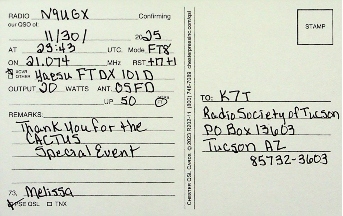 RADIO N9UGX Confirming
our QSO of:
11/30/ 2025
AT 23:43 UTC. Mode FT8
ON 21.074 MHz RST +17+1
XCVR OTHER Yaesu FTDX 101D
OUTPUT 20 WATTS ANT. OSFD
UP 50
REMARKS:
Thank You for the
CACTUS
Special Event
73, Melissa
PSE QSL TNX
CHESTER QSL CARDS © 2023 R202-11 (800) 748-7089 chesterpressinc.com/qsl
STAMP
TO: K7T
Radio Society of Tucson
PO Box 13603
Tucson AZ
85732-3603